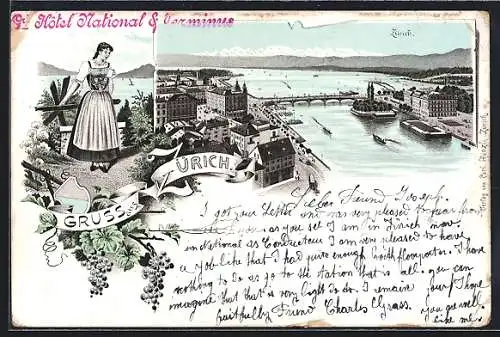 Gd. Hôtel National & Terminus
Zürich.
GRUSS AUS ZÜRICH
Lieber Freund Joseph.
I got your Letter and was very pleased to hear from
as you see I am in Zürich now
im National as Conducteur I am very pleased to have
a job like that I had quite enough with
nothing to do as go to the station that is all. you can
imagine that that is very light to do. I remain your
faithfully Friend Charles Grass.
I hope
you are well
like me.
Verlag von Carl Künzli, Zürich.